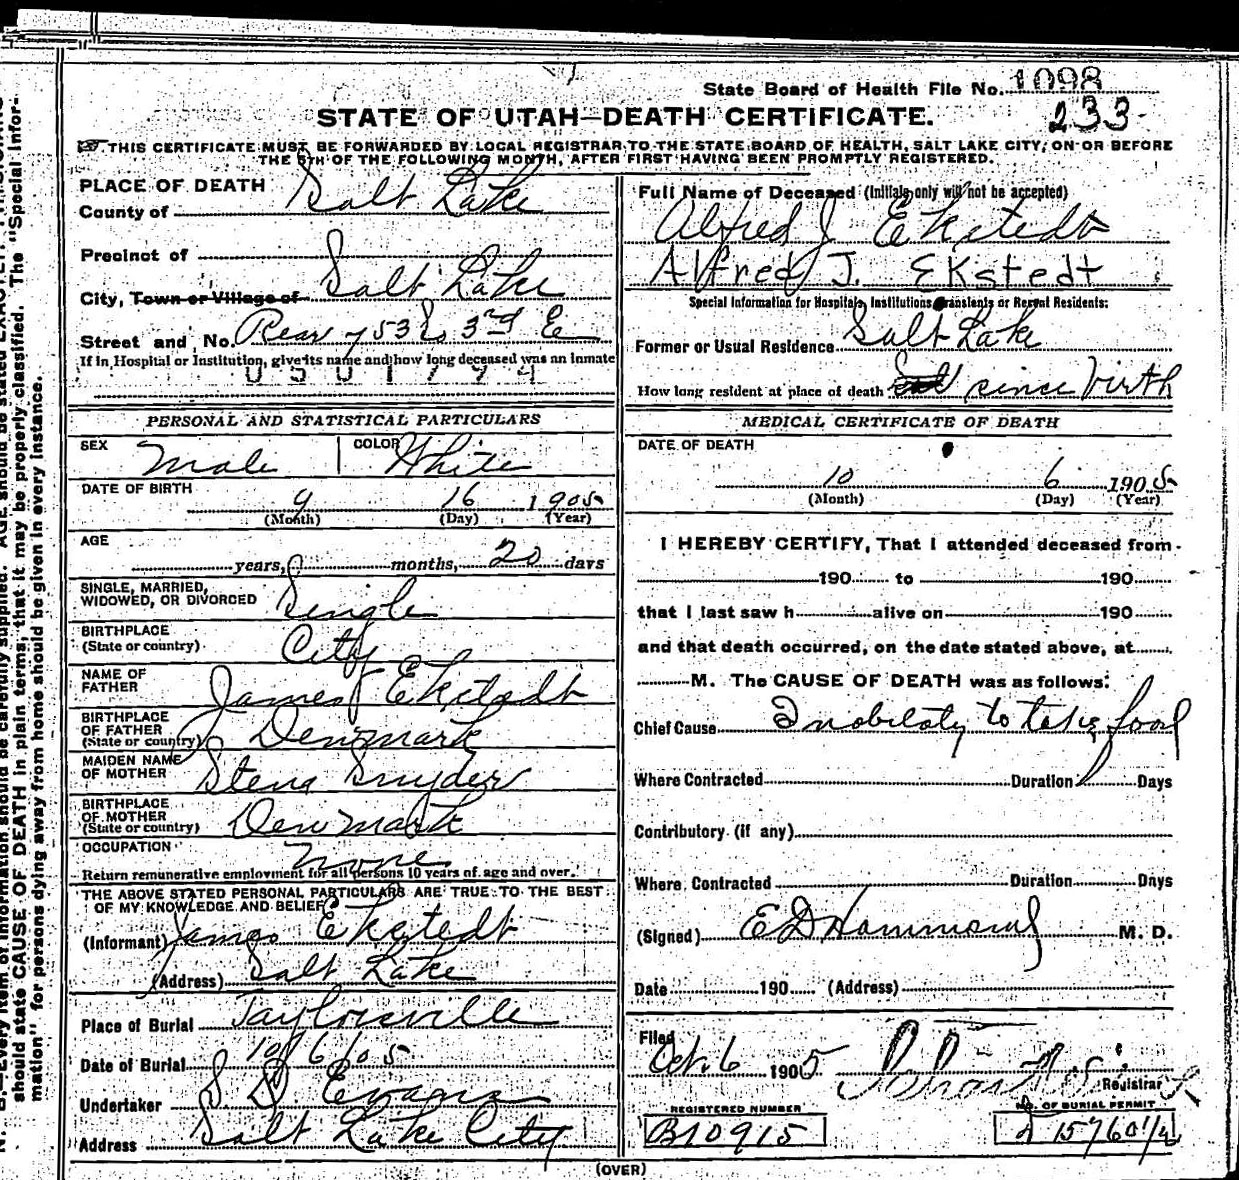 State Board of Health File No. 1098
233
STATE OF UTAH—DEATH CERTIFICATE.
THIS CERTIFICATE MUST BE FORWARDED BY LOCAL REGISTRAR TO THE STATE BOARD OF HEALTH, SALT LAKE CITY, ON OR BEFORE
THE 5TH OF THE FOLLOWING MONTH, AFTER FIRST HAVING BEEN PROMPTLY REGISTERED.
PLACE OF DEATH
County of Salt Lake
Precinct of
City, Town or Village of Salt Lake
Street and No. Rear 753 So 3rd E
If in Hospital or Institution, give its name and how long deceased was an inmate
0501794
PERSONAL AND STATISTICAL PARTICULARS
SEX Male COLOR White
DATE OF BIRTH
9 16 1905
(Month) (Day) (Year)
AGE
years, 0 months, 20 days
SINGLE, MARRIED,
WIDOWED, OR DIVORCED Single
BIRTHPLACE
(State or country) City
NAME OF
FATHER James Ekstedt
BIRTHPLACE
OF FATHER
(State or country) Denmark
MAIDEN NAME
OF MOTHER Stena Snyder
BIRTHPLACE
OF MOTHER
(State or country) Denmark
OCCUPATION none
Return remunerative employment for all persons 10 years of age and over.
THE ABOVE STATED PERSONAL PARTICULARS ARE TRUE TO THE BEST
OF MY KNOWLEDGE AND BELIEF
(Informant) James Ekstedt
(Address) Salt Lake
Place of Burial Taylorsville
Date of Burial 10/6/05
Undertaker S. D. Evans
Address Salt Lake City
Full Name of Deceased (Initials only will not be accepted)
Alfred J Ekstedt
Alfred J. Ekstedt
Special Information for Hospitals, Institutions, Transients or Recent Residents:
Former or Usual Residence Salt Lake
How long resident at place of death since birth
MEDICAL CERTIFICATE OF DEATH
DATE OF DEATH
10 6 1905
(Month) (Day) (Year)
I HEREBY CERTIFY, That I attended deceased from
190 to 190
that I last saw h alive on 190
and that death occurred, on the date stated above, at
M. The CAUSE OF DEATH was as follows:
Chief Cause Inobilaty to take food
Where Contracted Duration Days
Contributory (if any)
Where Contracted Duration Days
(Signed) E D Hammond M. D.
Date 190 (Address)
Filed
Oct. 6 1905
Registrar
REGISTERED NUMBER
B10915
NO. OF BURIAL PERMIT
(OVER)
should state CAUSE OF DEATH in plain terms, that it may be properly classified. The "Special Infor-
mation" for persons dying away from home should be given in every instance.